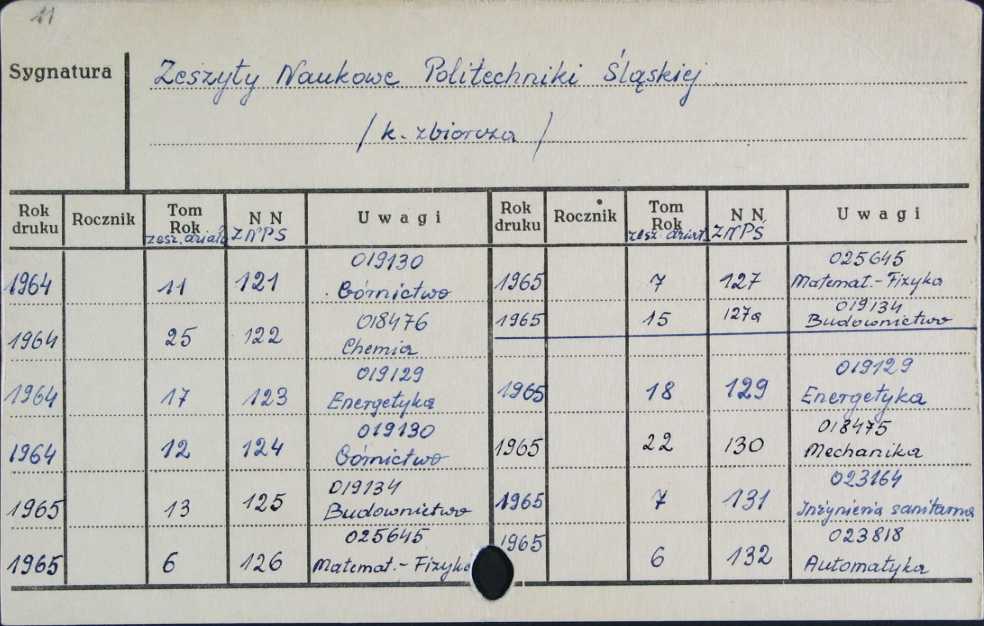 11
Sygnatura
Zeszyty Naukowe Politechniki Śląskiej
/ k. zbiorcza /
Rok druku Rocznik Tom Rok zesz. działu N N ZNPŚ Uwagi Rok druku Rocznik Tom Rok zesz. dział. N N ZNPŚ Uwagi
1964 11 121 019130 Górnictwo 1965 7 127 025645 Matemat.-Fizyka
1964 25 122 018476 Chemia 1965 15 127a 019134 Budownictwo
1964 17 123 019129 Energetyka 1965 18 129 019129 Energetyka
1964 12 124 019130 Górnictwo 1965 22 130 018475 Mechanika
1965 13 125 019134 Budownictwo 1965 7 131 023164 Inżynieria sanitarna
1965 6 126 025645 Matemat.-Fizyka 1965 6 132 023818 Automatyka